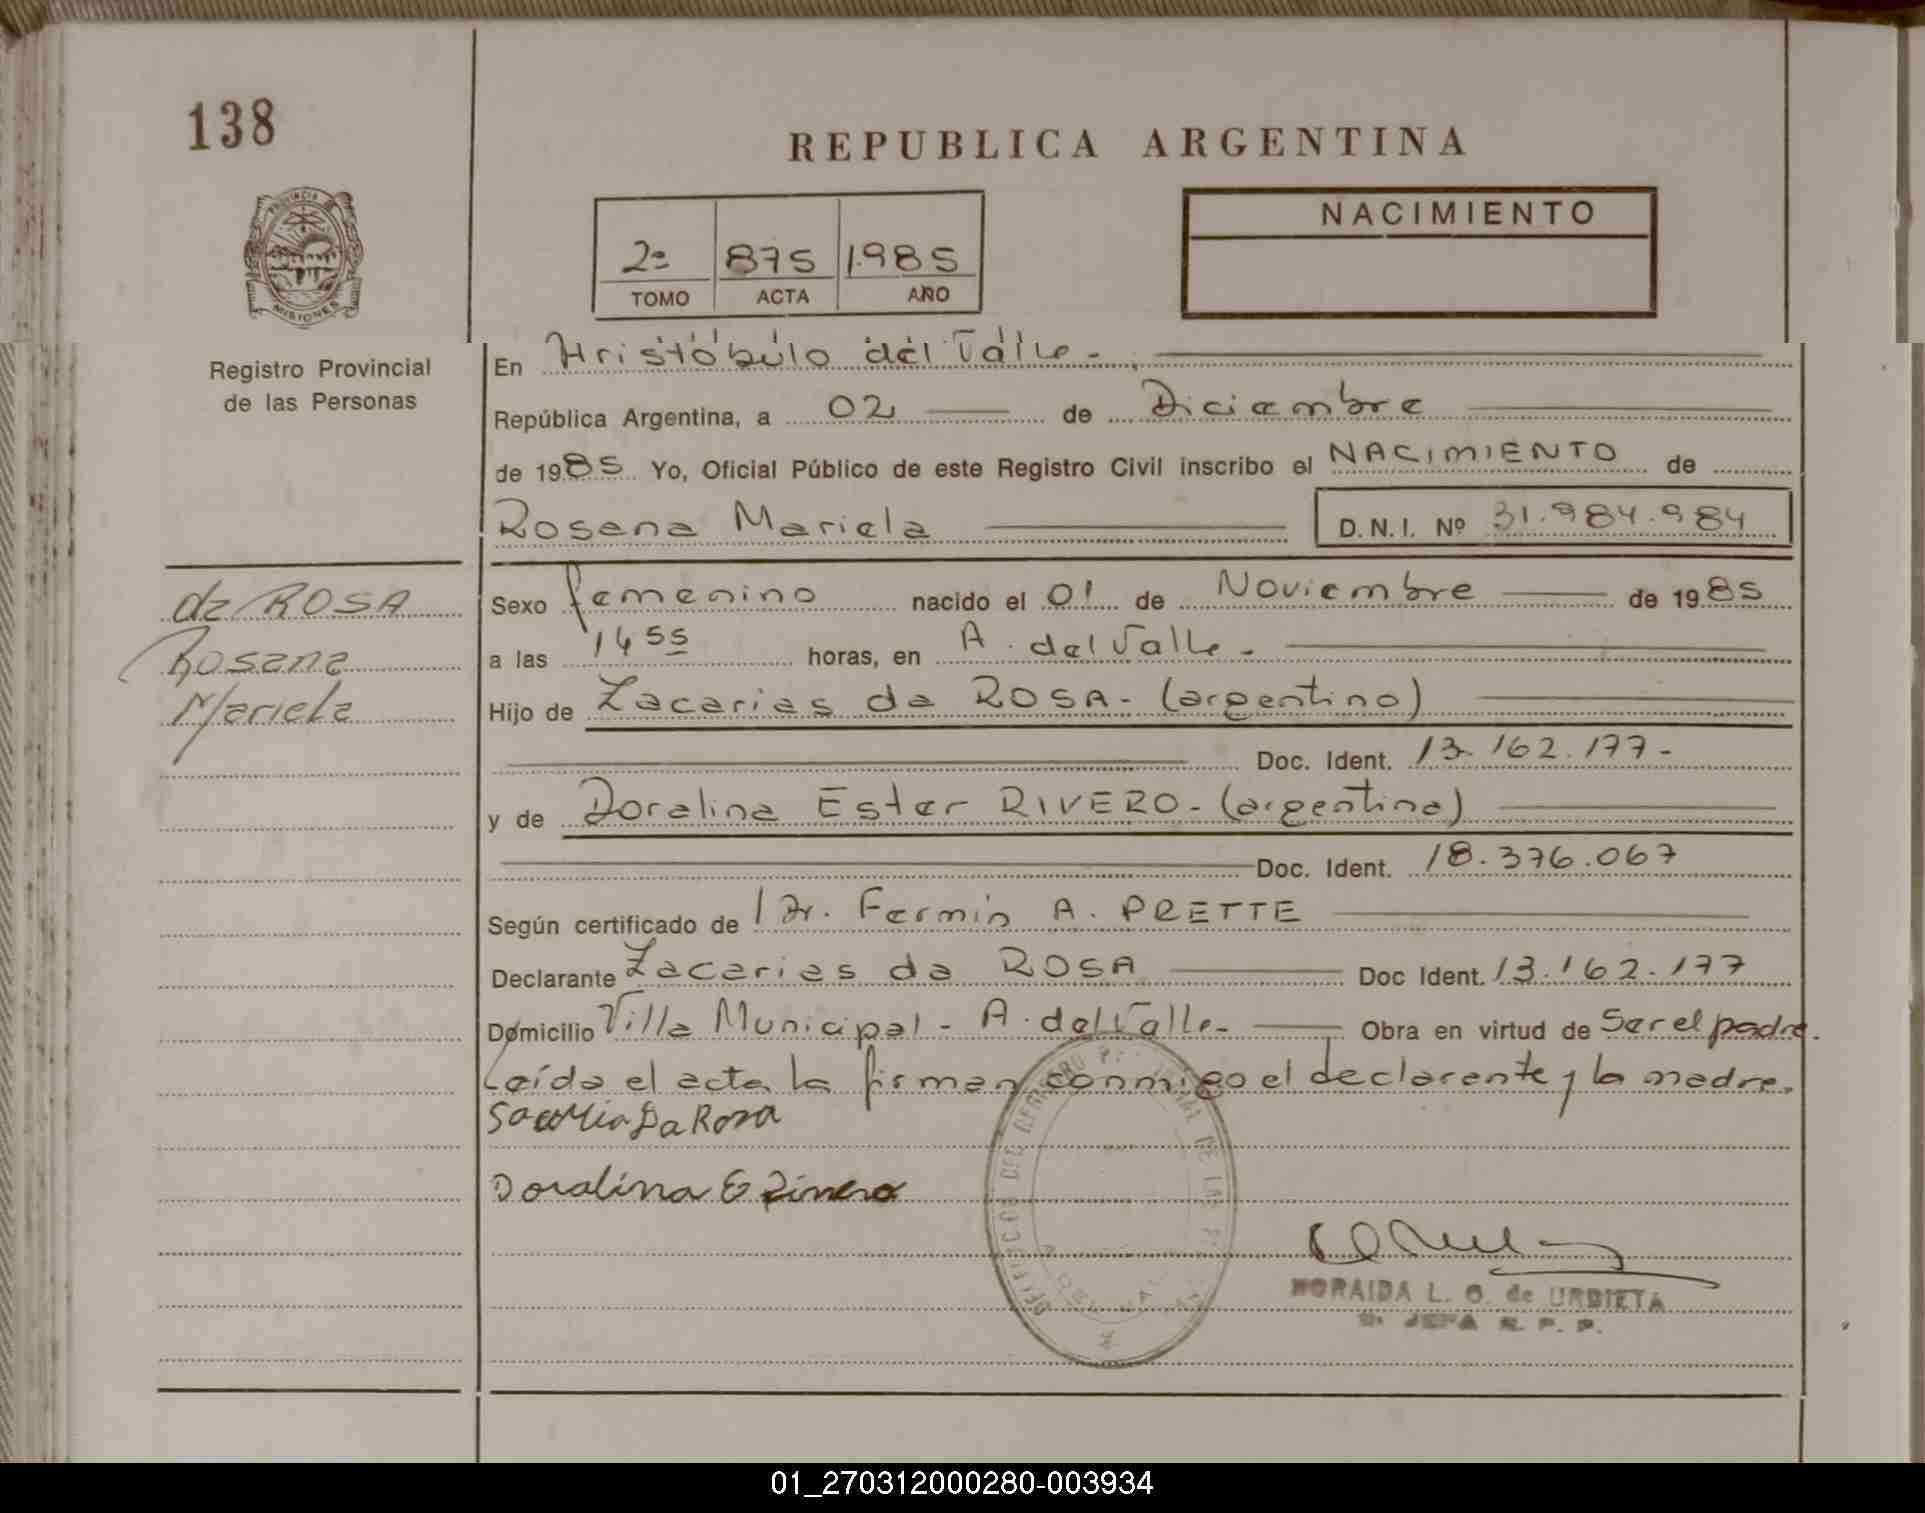 138
REPUBLICA ARGENTINA
PROVINCIA
MISIONES
2º 875 1.985
TOMO ACTA AÑO
NACIMIENTO
Registro Provincial
de las Personas
En Aristóbulo del Valle-
República Argentina, a 02 de Diciembre
de 1985 Yo, Oficial Público de este Registro Civil inscribo el NACIMIENTO de
Rosana Mariela D.N.I. Nº 31.984.984
da ROSA
Rosana
Mariela
Sexo femenino nacido el 01 de Noviembre de 1985
a las 14 55 horas, en A. del Valle-
Hijo de Zacarias da ROSA- (argentino)
Doc. Ident. 13.162.177-
y de Doralina Ester RIVERO- (argentina)
Doc. Ident. 18.376.067
Según certificado de Dr. Fermín A. PRETTE
Declarante Zacarias da ROSA Doc Ident. 13.162.177
Domicilio Villa Municipal - A. del Valle- Obra en virtud de Ser el padre.
Leída el acta, la firman conmigo el declarante y la madre.
Da Rosa
Doralina E Rivero
L. O. de URBIETA
JEFA R. P. P.
01_270312000280-003934